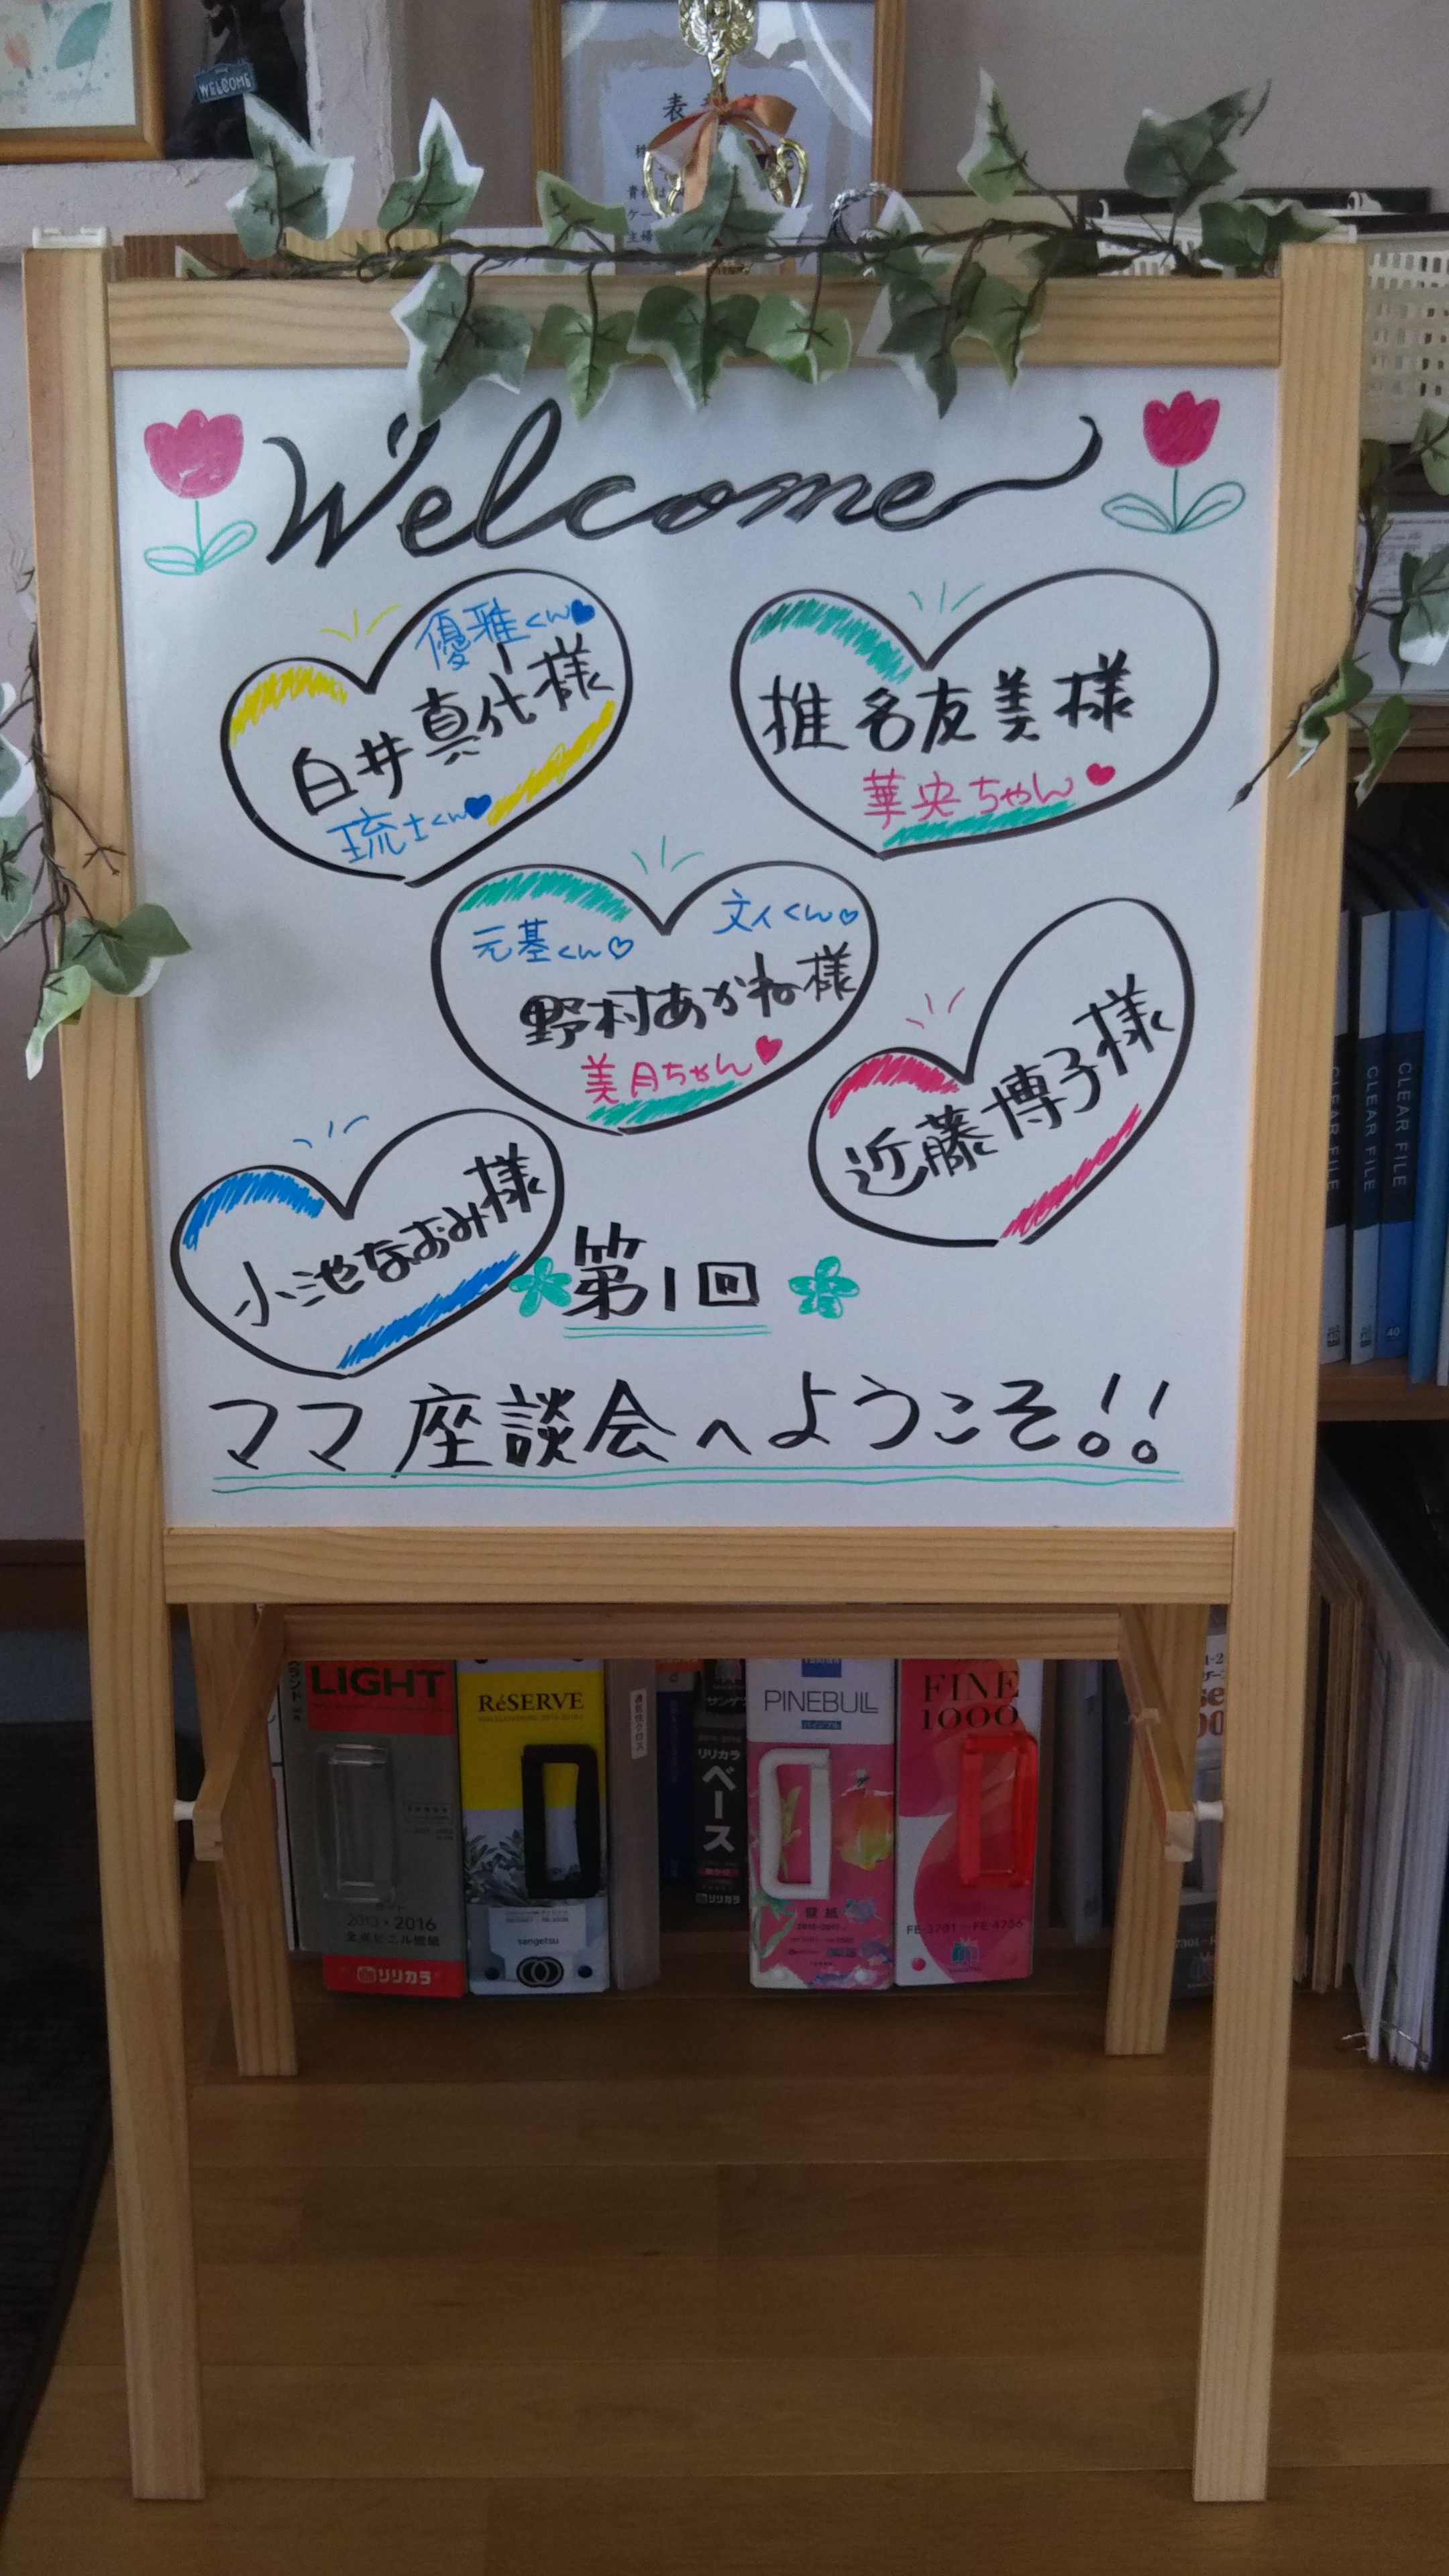 WELCOME
表
Welcome
優雅くん
白井真代様
琉士くん
椎名友美様
華央ちゃん
元基くん
文イくん
野村あかね様
美月ちゃん
近藤博子様
小池なおみ様
第1回
ママ座談会へようこそ!!
CLEAR FILE
CLEAR FILE
CLEAR FILE
40
LIGHT
2013・2016
全点ビニル壁紙
リリカラ
RéSERVE
sangetsu
サンゲツ
リリカラ
ベース
リリカラ
PINEBULL
パインブル
壁紙
FINE
1000
FE-3701〜FE-4756